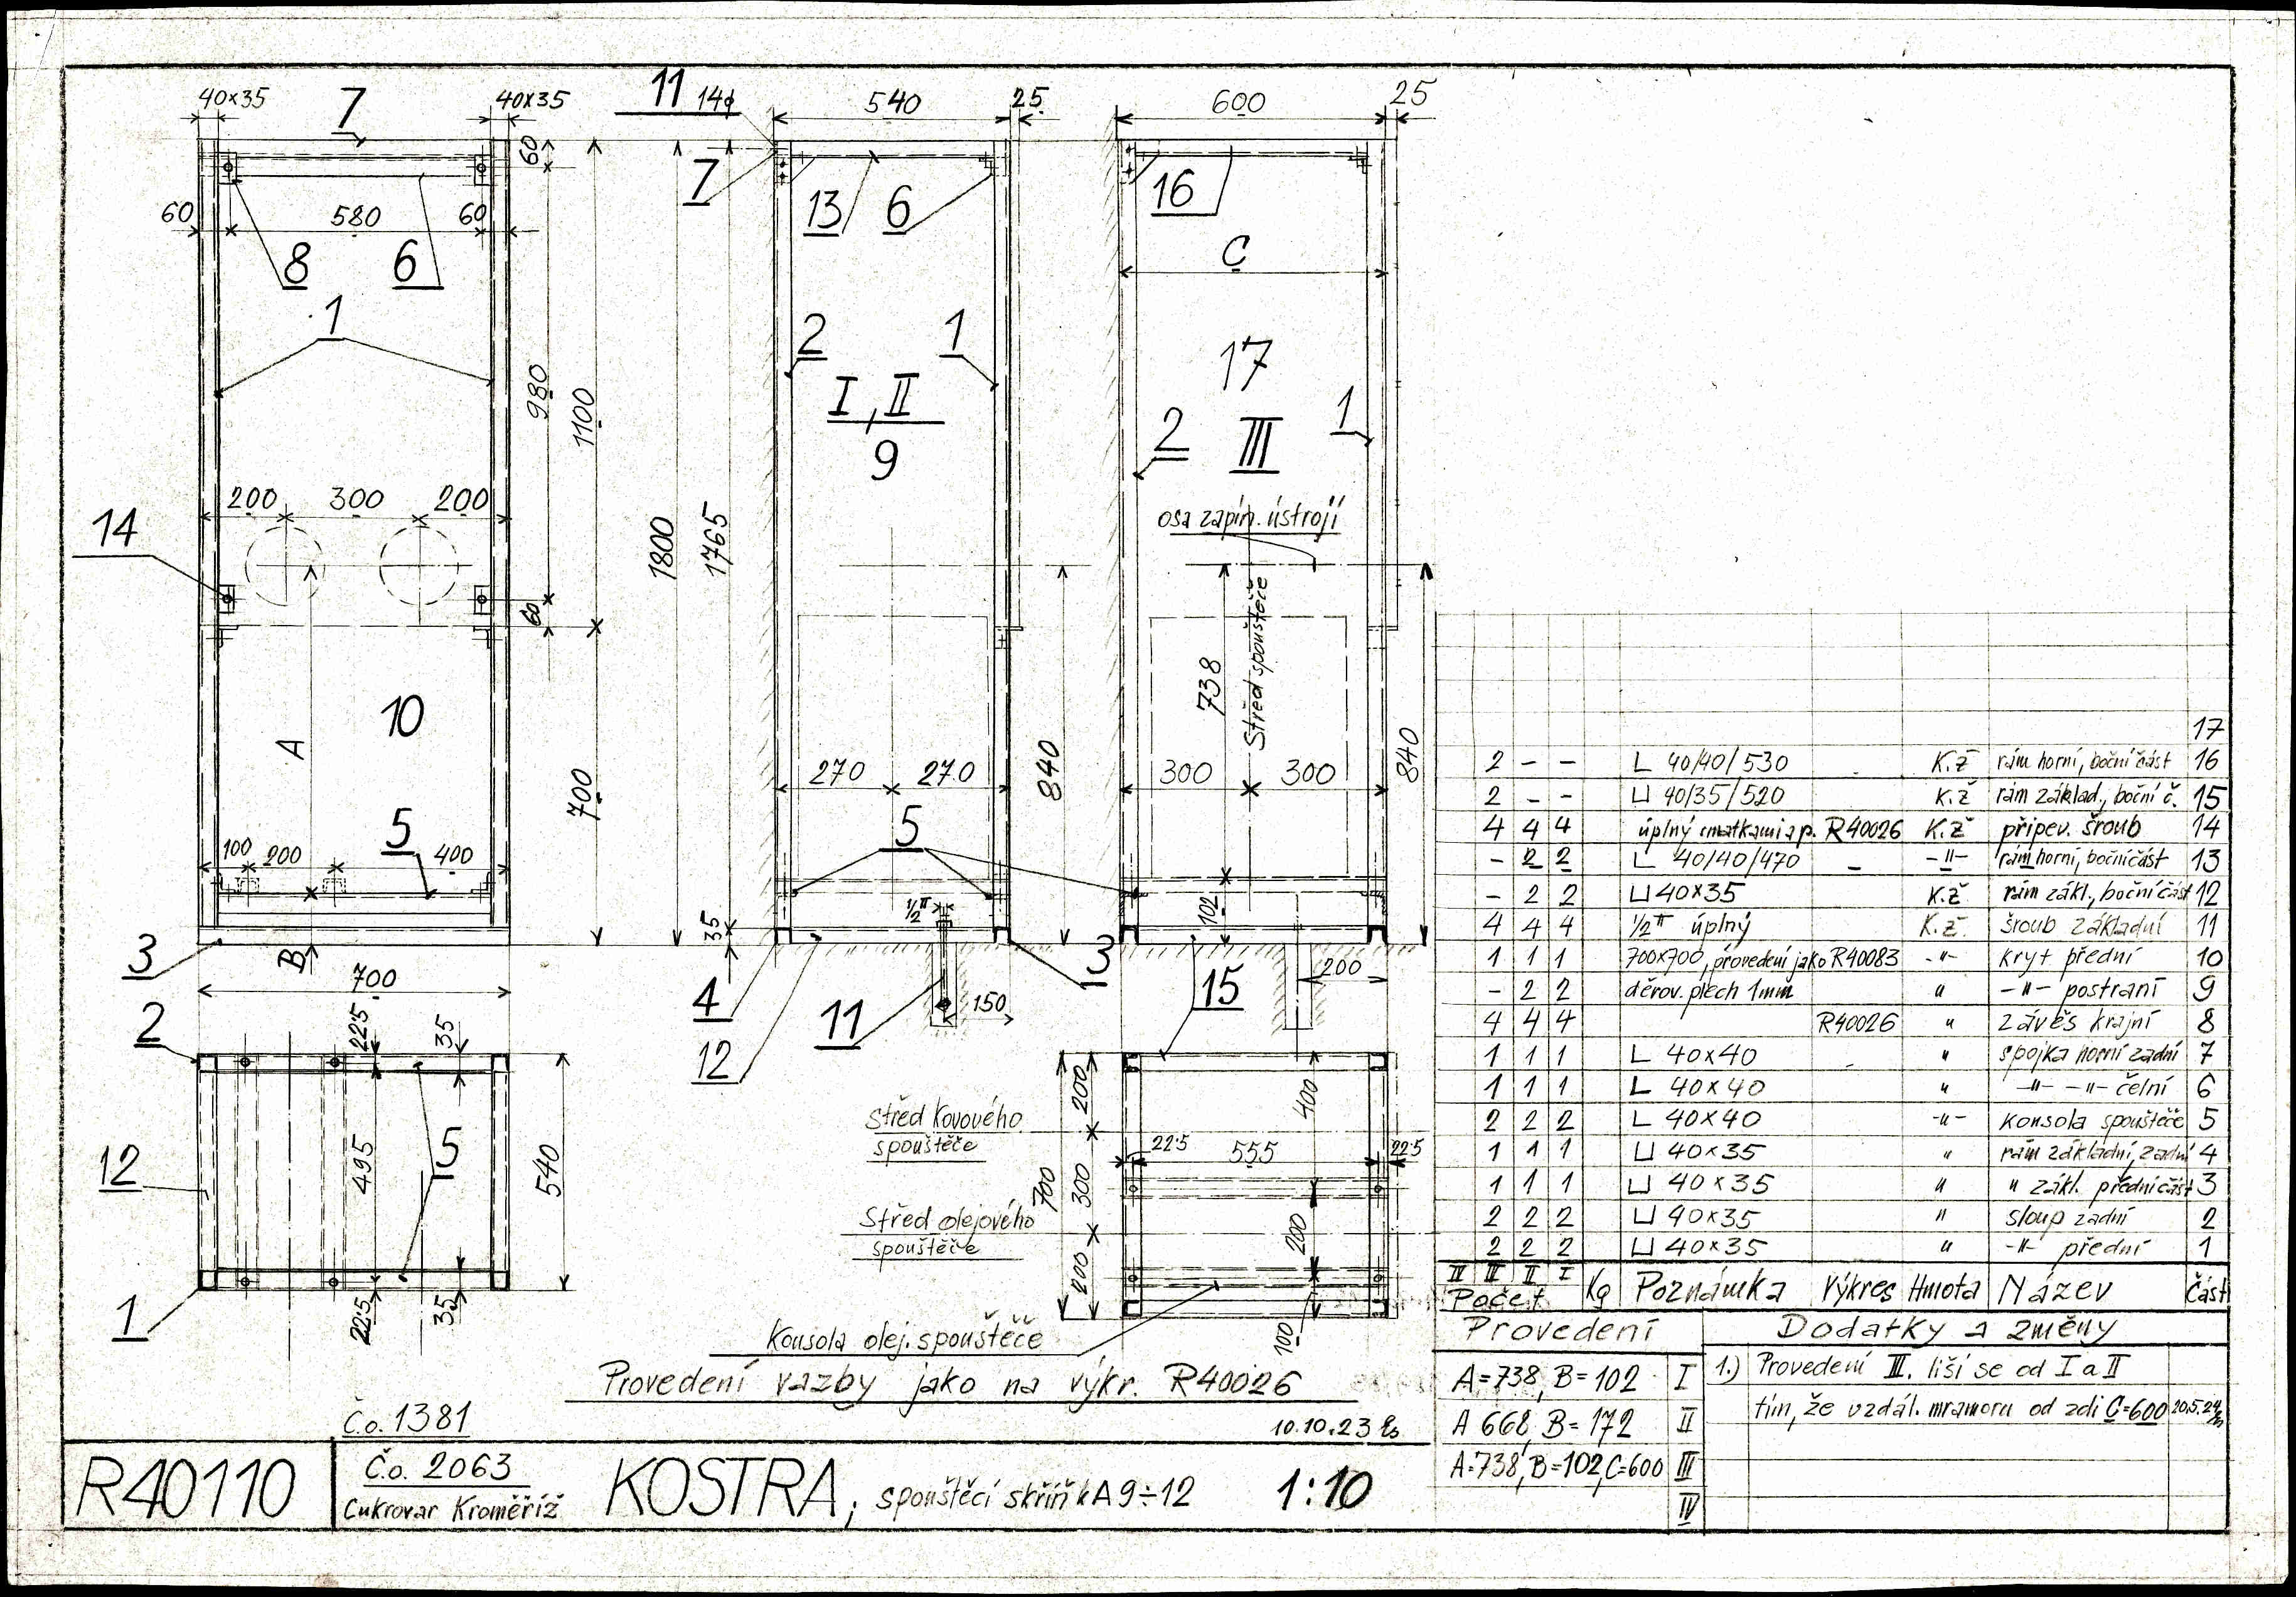 40×35
7
40×35
60
60
580
60
8
6
1
980
1100
200
300
200
14
60
10
A
700
5
100
200
400
3
B
700
11 14ϕ
540
25
7
13
6
2
1
I, II
9
1800
1765
270
270
840
5
35
1/2"
4
11
150
12
13
600
25
16
C
17
2
III
1
osa zapín. ústrojí
738
Střed spouštěče
840
300
300
102
200
15
2
225
35
12
495
5
540
1
225
35
Střed kovového
spouštěče
Střed olejového
spouštěče
700
200
300
200
400
22·5
555
22·5
200
100
Konsola olej. spouštěče
Provedení vazby jako na výkr. R40026
10.10.23
17
2 – – L 40/40/530 K.Ž rám horní, boční část 16
2 – – ⊔ 40/35/520 K.Ž rám základ., boční č. 15
4 4 4 úplný s matkami a p. R40026 K.Ž připev. šroub 14
– 2 2 L 40/40/470 – –"– rám horní, boční část 13
– 2 2 ⊔ 40×35 K.Ž rám zákl., boční část 12
4 4 4 1/2" úplný K.Ž. šroub základní 11
1 1 1 700×700, provedení jako R40083 –"– kryt přední 10
– 2 2 děrov. plech 1mm " –"– postraní 9
4 4 4 R40026 " závěs krajní 8
1 1 1 L 40×40 " spojka horní zadní 7
1 1 1 L 40×40 " –"– –"– čelní 6
2 2 2 L 40×40 –"– konsola spouštěče 5
1 1 1 ⊔ 40×35 " rám základní, zadní 4
1 1 1 ⊔ 40×35 " " zákl. přední část 3
2 2 2 ⊔ 40×35 " sloup zadní 2
2 2 2 ⊔ 40×35 " –"– přední 1
IV III II I
Počet Kg Poznámka Výkres Hmota Název Část
Provedení
A=738, B=102 I
A 668, B=172 II
A=738, B=102, C=600 III
IV
Dodatky a změny
1.) Provedení III. liší se od I a II
tím, že vzdál. mramoru od zdi C=600 20.5.24
Č.o. 1381
R40110
Č.o. 2063
Cukrovar Kroměříž
KOSTRA, spouštěcí skříňka A 9÷12 1:10